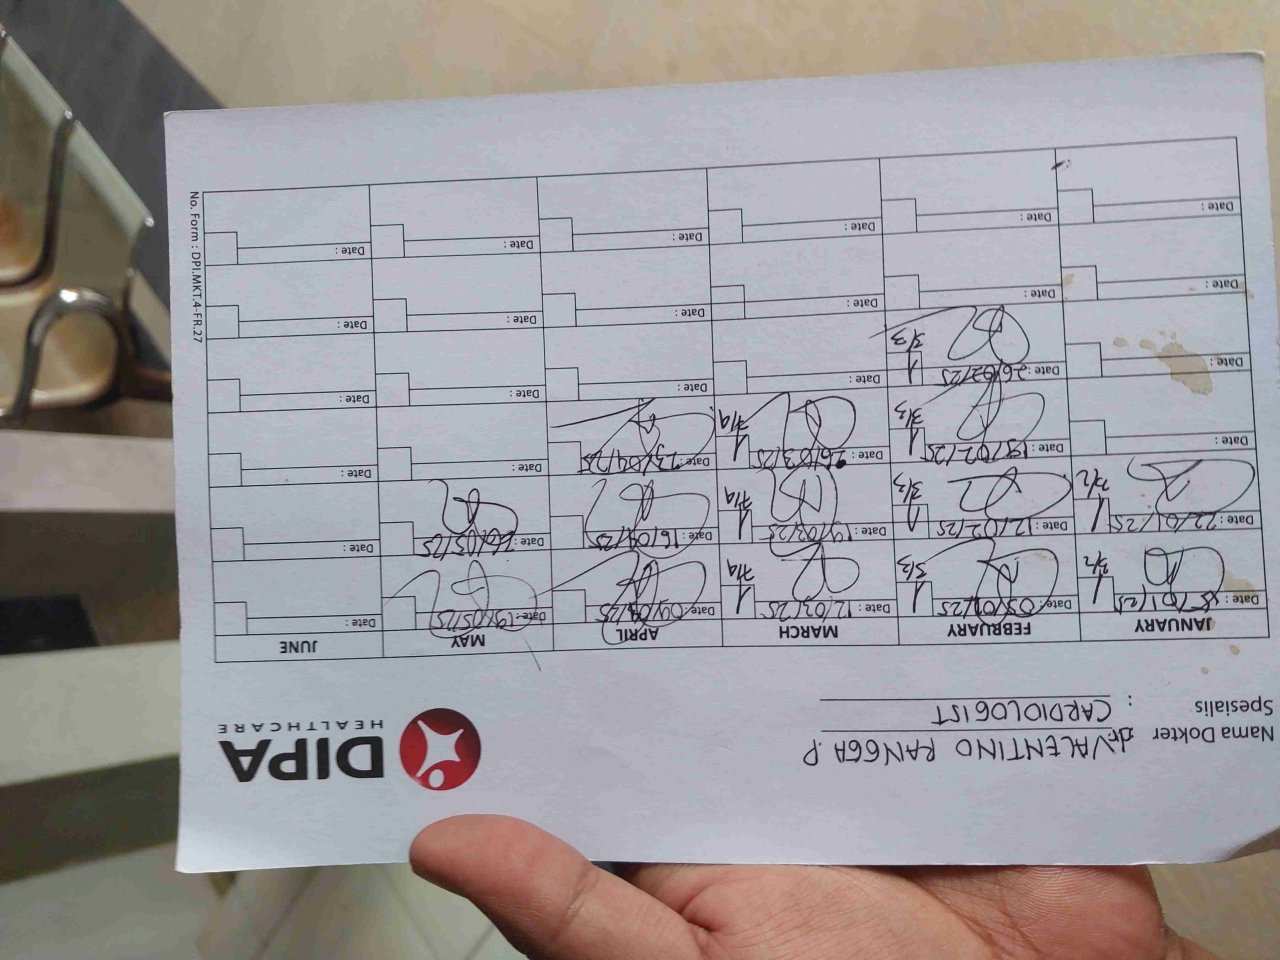 Nama Dokter : dr. VALENTINO RANGGA.P
Spesialis : CARDIOLOGIST
DIPA
HEALTHCARE
JANUARY FEBRUARY MARCH APRIL MAY JUNE
Date : 15/01/25 Date : 05/02/25 Date : 12/03/25 Date : 09/04/25 Date : 19/05/25 Date :
1 3/2 1 3/3 1 7/4
Date : 22/01/25 Date : 12/02/25 Date : 19/03/25 Date : 16/04/25 Date : Date :
1 3/2 1 3/3 1 7/4
Date : Date : 19/02/25 Date : 26/03/25 Date : 23/04/25 Date : Date :
1 3/3 1 7/4
Date : Date : 26/02/25 Date : Date : Date : Date :
1 3/3
Date : Date : Date : Date : Date : Date :
Date : Date : Date : Date : Date : Date :
No. Form : DPI.MKT.4-FR.27